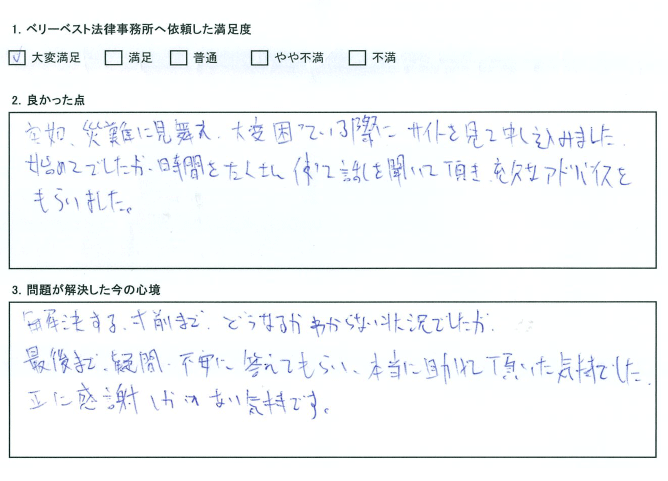 1. ベリーベスト法律事務所へ依頼した満足度
大変満足 満足 普通 やや不満 不満
2. 良かった点
突如、災難に見舞え、大変困っている際に サイトを見て申し込みました。
始めてでしたが、時間をたくさん 使って話しを聞いて頂き、 アドバイスを
もらいました。
3. 問題が解決した今の心境
解決する、寸前まで、どうなるかわからない状況でしたが、
最後まで、疑問、不安に 答えてもらい、本当に助けて頂いた気持でした。
正に感謝しかない気持です。